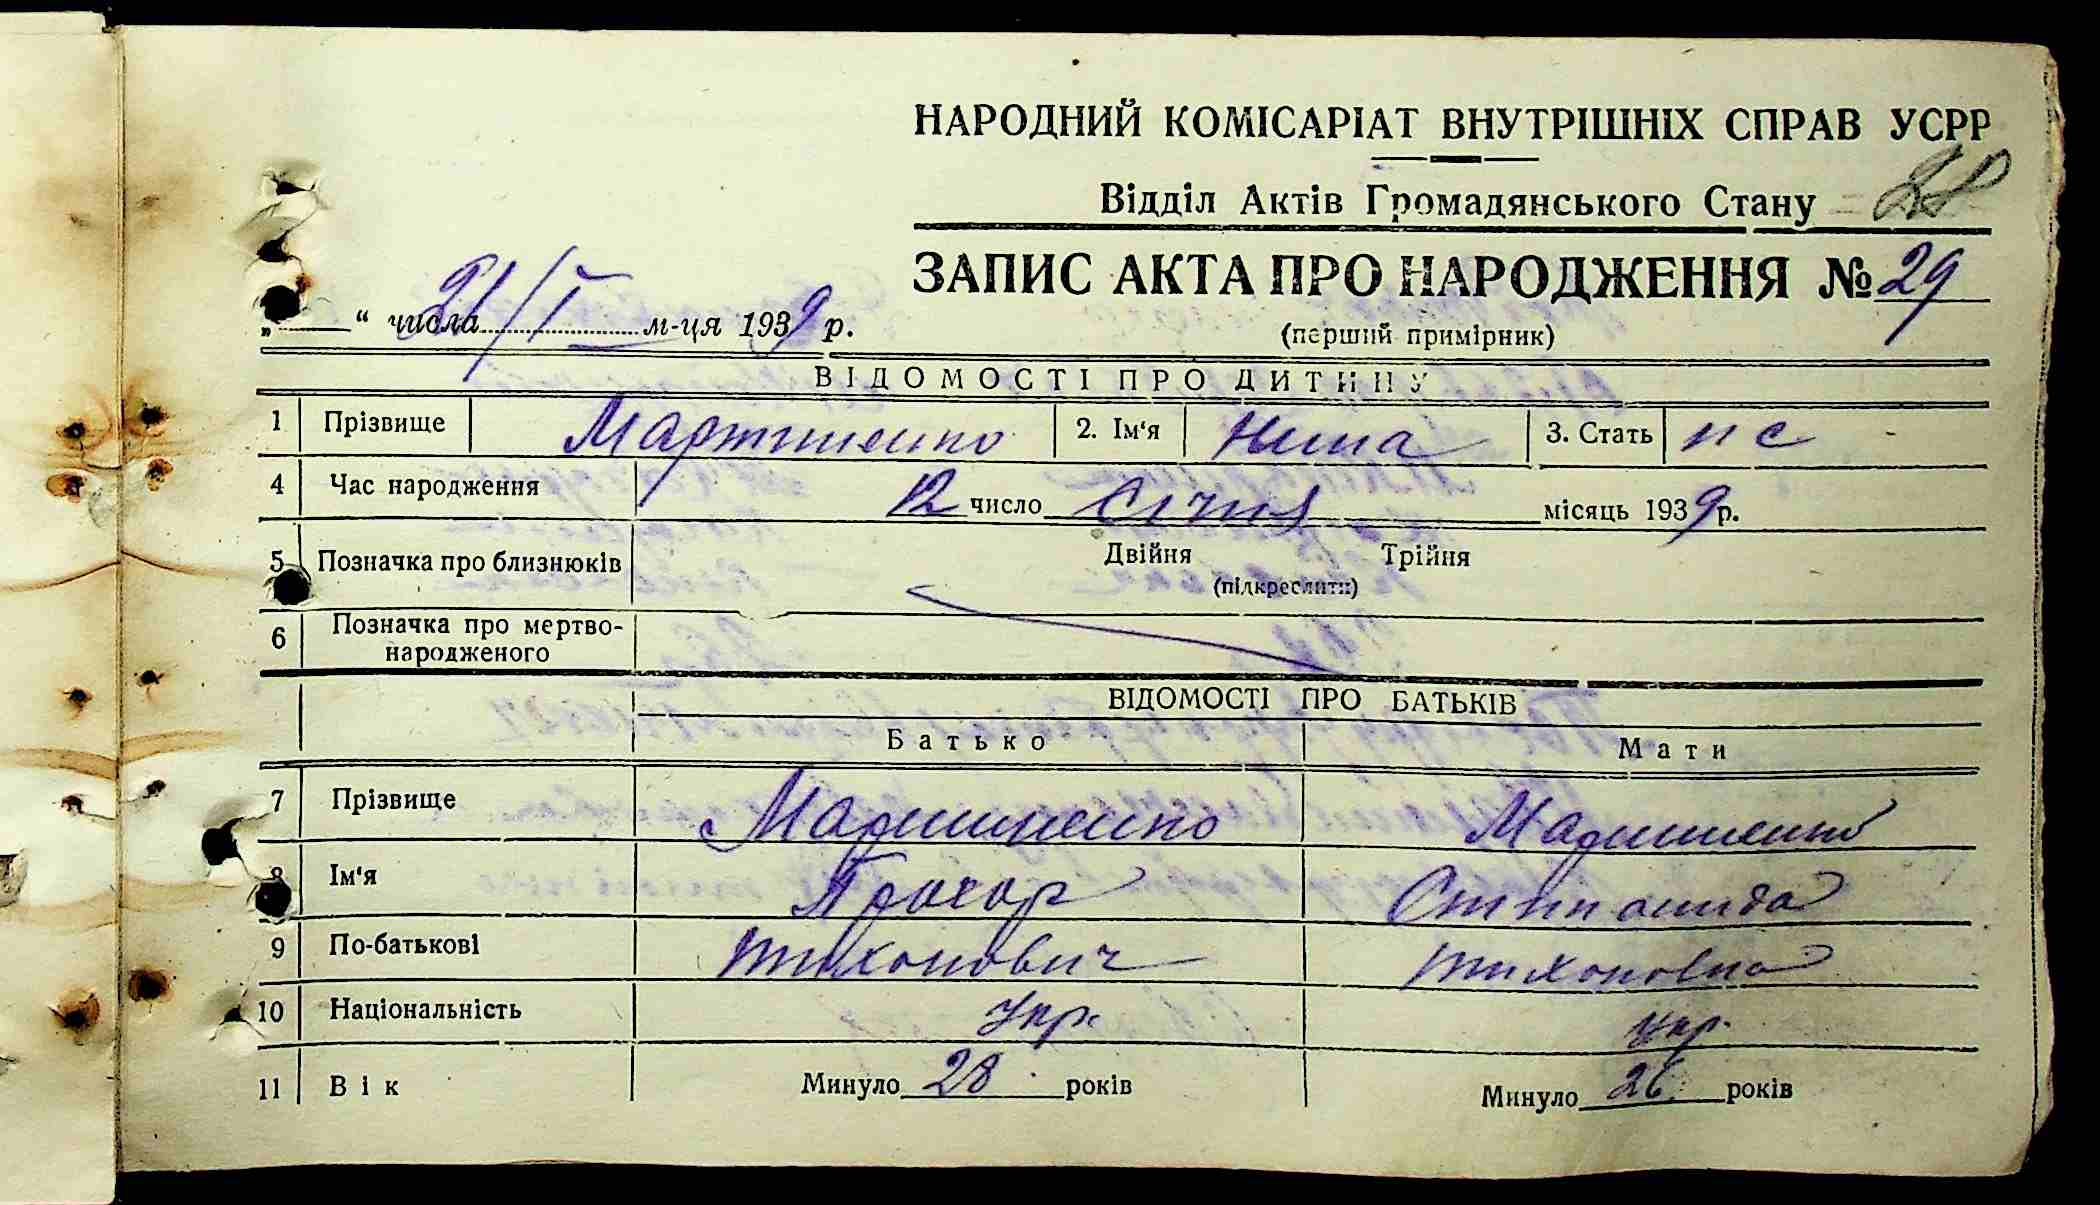 НАРОДНИЙ КОМІСАРІАТ ВНУТРІШНІХ СПРАВ УСРР
Відділ Актів Громадянського Стану
ЗАПИС АКТА ПРО НАРОДЖЕННЯ № 29
„ “ числа 21/I м-ця 1939 р.
(перший примірник)
ВІДОМОСТІ ПРО ДИТИНУ
1 Прізвище Мартиненко 2. Ім‘я Нина 3. Стать жс
4 Час народження 12 число Січня місяць 1939 р.
5 Позначка про близнюків Двійня Трійня
(підкреслити)
6 Позначка про мертво-
народженого
ВІДОМОСТІ ПРО БАТЬКІВ
Батько Мати
7 Прізвище Мартиненко Мартиненко
8 Ім‘я Прохор Степанида
9 По-батькові Тихонович Тихоновна
10 Національність Укр. Укр.
11 Вік Минуло 28 років Минуло 26 років